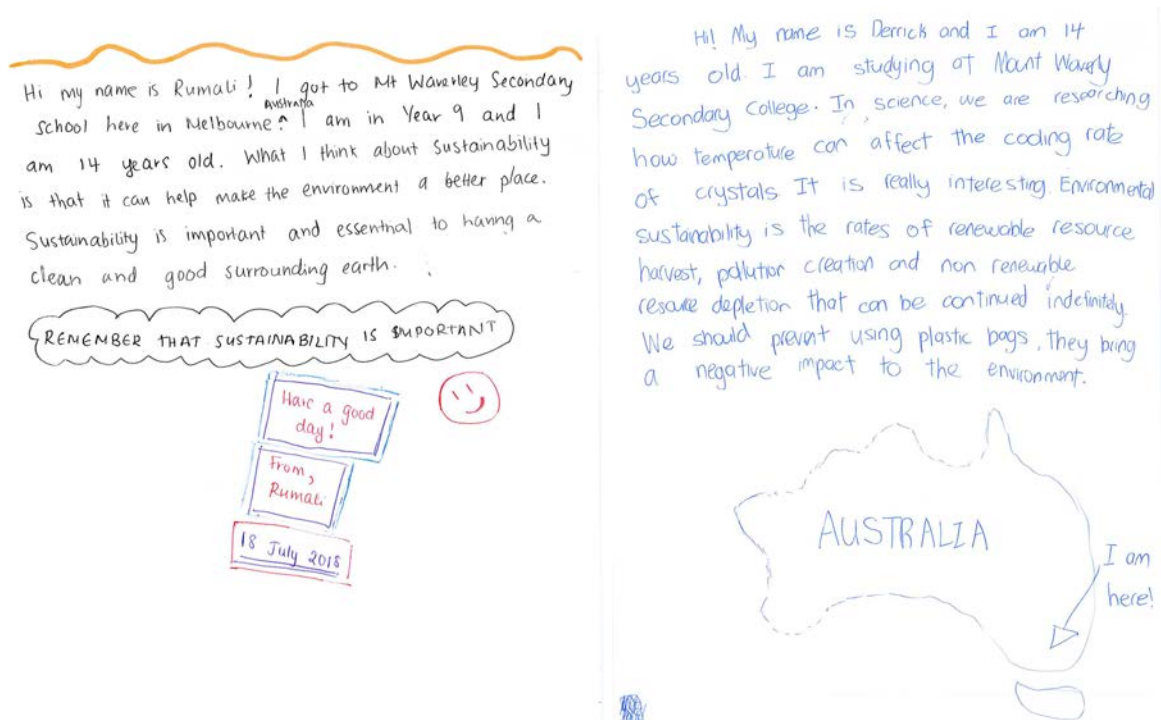 Hi my name is Rumali! I got to Mt Waverley Secondary
Australia
school here in Melbourne^. I am in Year 9 and I
am 14 years old. What I think about Sustainability
is that it can help make the environment a better place.
Sustainability is important and essential to having a
clean and good surrounding earth.
REMEMBER THAT SUSTAINABILITY IS IMPORTANT
Have a good
day!
From,
Rumali
18 July 2018
Hi! My name is Derrick and I am 14
years old. I am studying at Mount Waverly
Secondary College. In science, we are researching
how temperature can affect the cooling rate
of crystals. It is really interesting. Environmental
sustainability is the rates of renewable resource
harvest, pollution creation and non renewable
resource depletion that can be continued indefinitely.
We should prevent using plastic bags, they bring
a negative impact to the environment.
AUSTRALIA
I am
here!